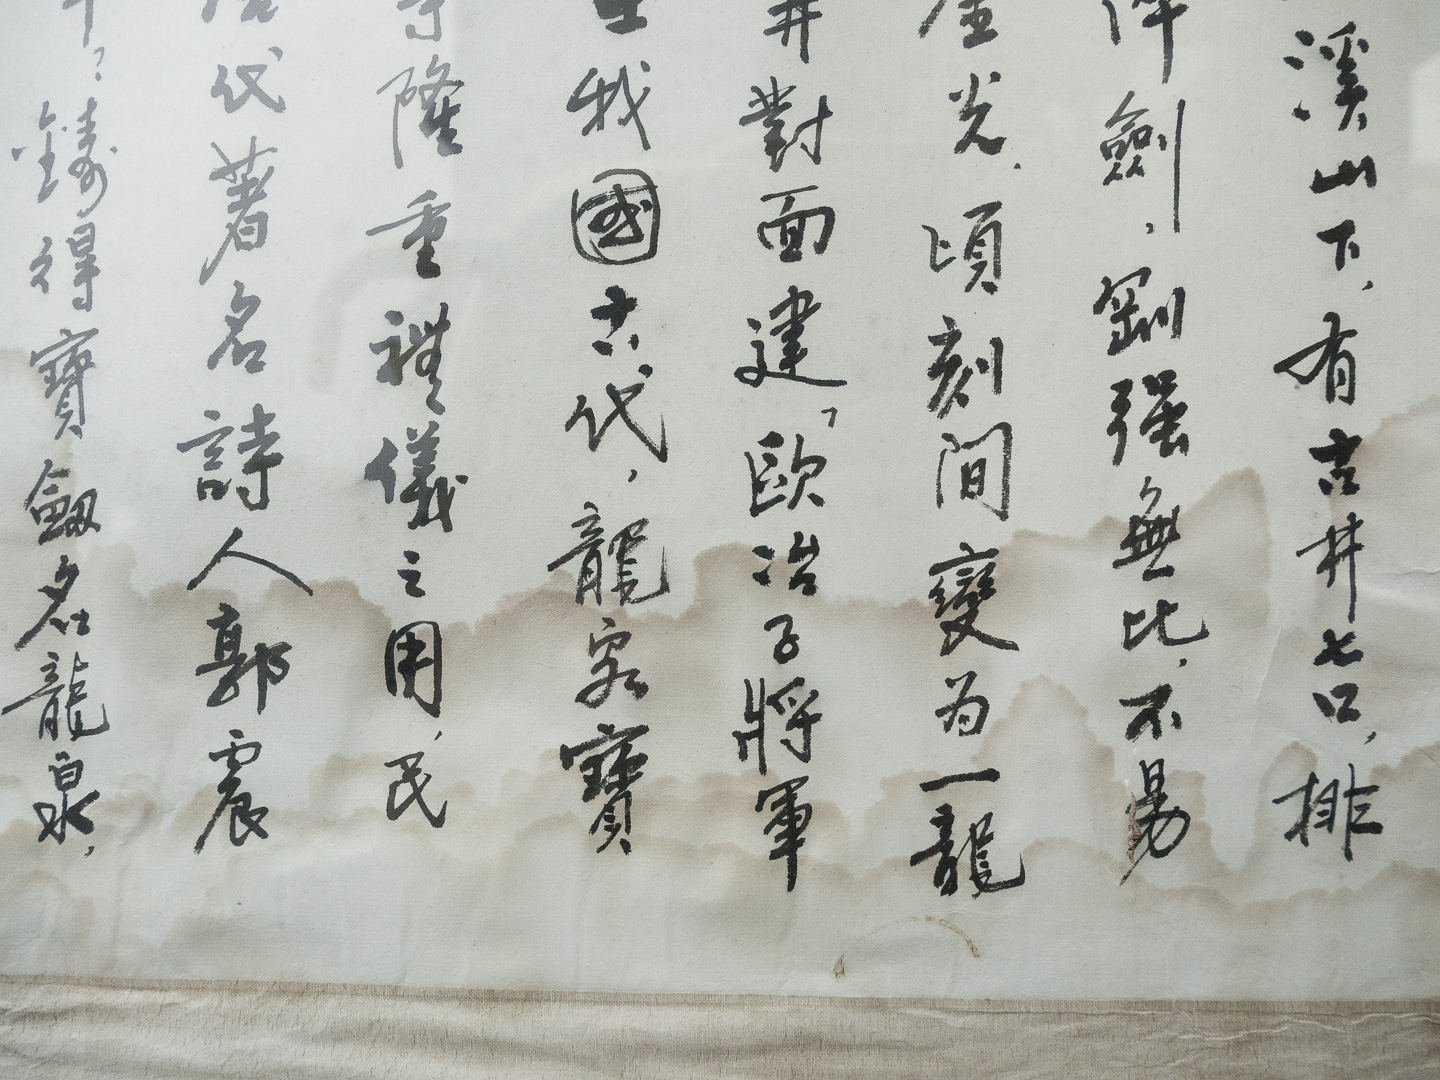 溪山下，有古井七口，排
劍，剛强無比，不易
光，頃刻間變为一龍
井對面建，歐冶子將軍
我國古代，龍泉寶
隆重禮儀之用，民
代著名詩人郭震
鑄得寶劔名龍泉，